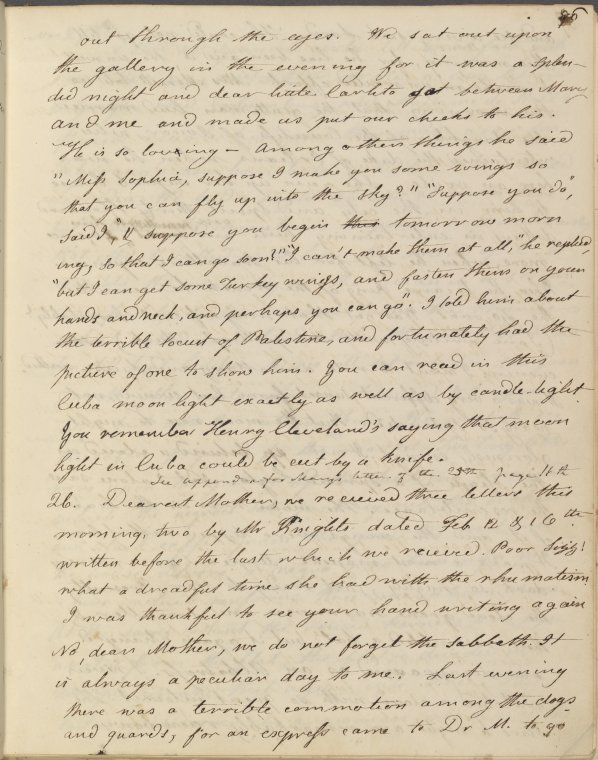 86
out through the eyes. We sat out upon
the gallery in the evening for it was a splen-
did night and dear little Carlito got between Mary
and me and made us put our cheeks to his.
He is so loving – Among others things he said
"Miss Sophia, suppose I make you some wings so
that you can fly up into the sky?" "Suppose you do",
said I, "& suppose you begin this tomorrow morn
ing, so that I can go soon?" "I can't make them at all," he replied,
"but I can get some Turkey wings, and fasten them on your
hands and neck, and perhaps you can go". I told him about
the terrible locust of Palestine, and fortunately had the
picture of one to show him. You can read in this
Cuba moon light exactly as well as by candle-light.
You remember Henry Cleveland's saying that moon
light in Cuba could be cut by a knife.
See append a for Mary's letter of the 25th page 11th
26. Dearest Mother, we received three letters this
morning, two by Mr Knights dated Feb 12 & 16th
written before the last which we received. Poor
what a dreadful time she had with the rhumatism
I was thankful to see your hand writing again
No, dear Mother, we do not forget the Sabbath. It
is always a peculiar day to me. Last evening
there was a terrible commotion among the dogs
and guards, for an express came to Dr M. to go